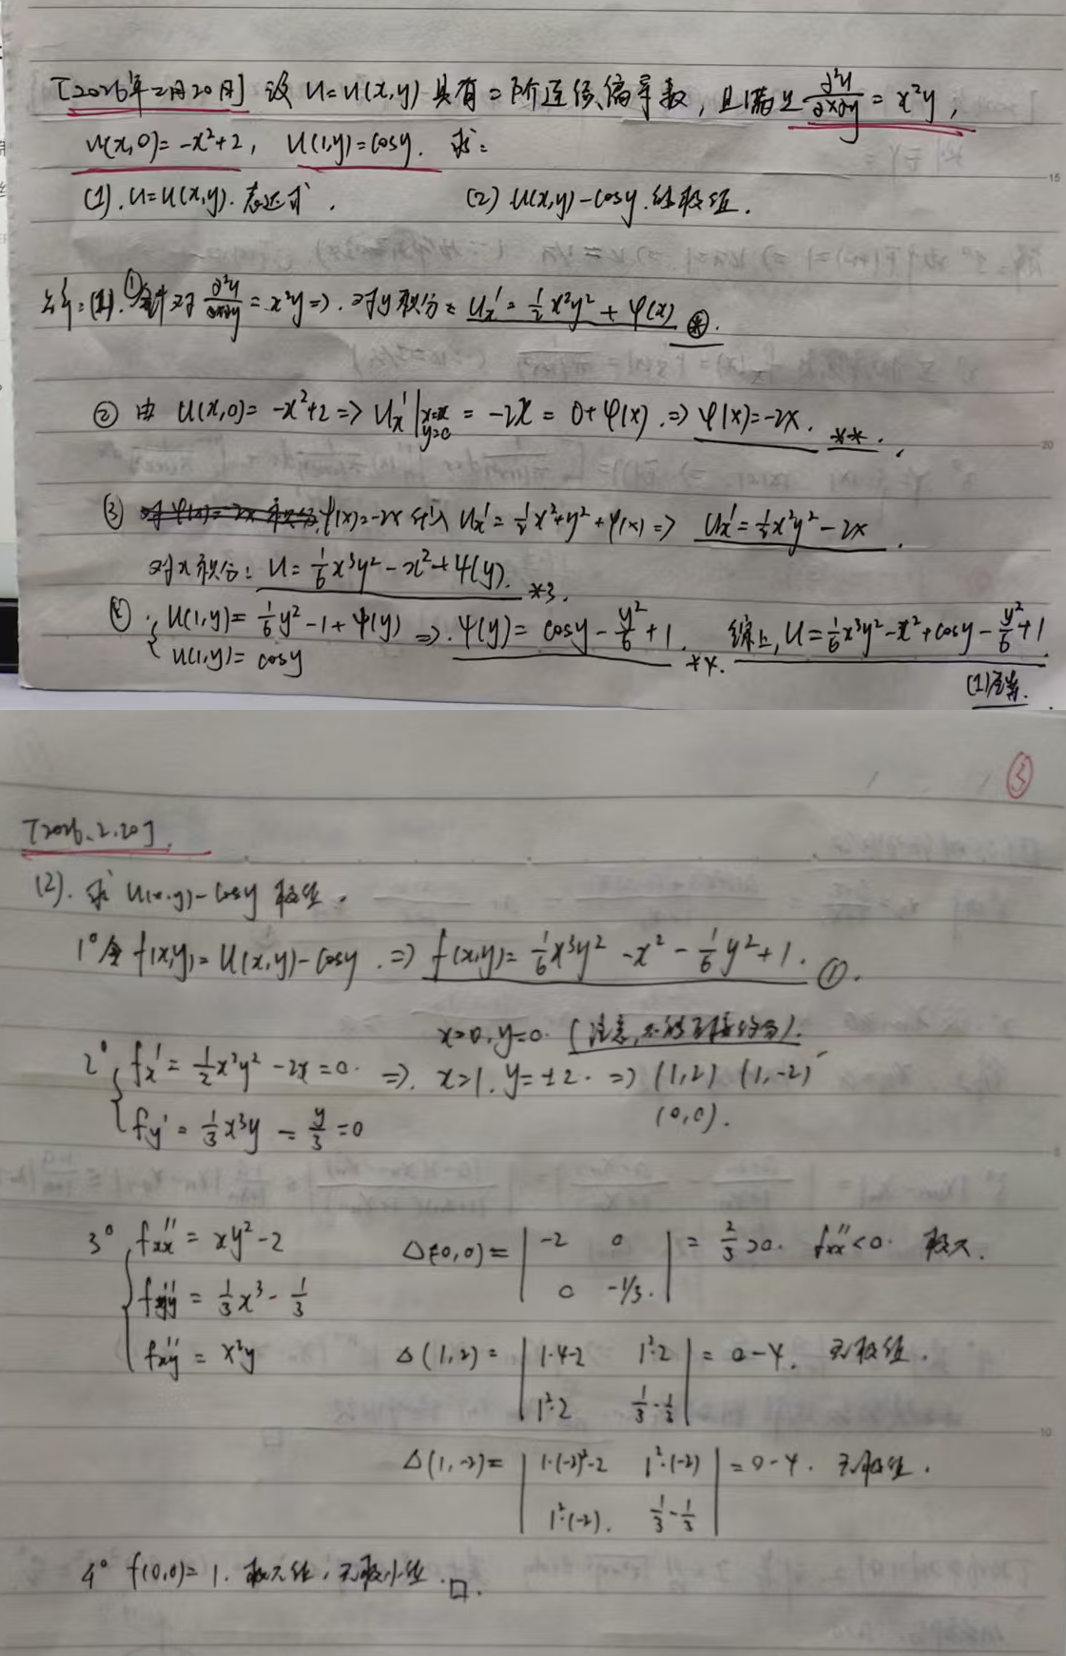 [2026年2月20日] 设 u=u(x,y) 具有二阶连续偏导数, 且满足 ∂²u/∂x∂y = x²y,
u(x,0)=-x²+2, u(1,y)=cosy. 求:
(1). u=u(x,y). 表达式. (2) u(x,y)-cosy. 的极值.
解:(1). ① 对 ∂²u/∂x∂y = x²y ⇒. 对y积分: ux' = 1/2 x²y² + φ(x) ⊛.
② 由 u(x,0)= -x²+2 ⇒ ux'|x=x y=0 = -2x = 0+φ(x). ⇒ φ(x)=-2x. **.
③ φ(x)=-2x 代入 ux'=1/2 x²+y²+φ(x) ⇒ ux'=1/2 x²y²-2x.
对x积分: u=1/6 x³y²-x²+ψ(y). *3.
④ { u(1,y)=1/6 y²-1+ψ(y) ⇒. ψ(y)= cosy - y²/6 +1. *4. 综上, u=1/6 x³y²-x²+cosy-y²/6+1.
u(1,y)= cosy
(1)完毕.
③
[2026.2.20].
(2). 求 u(x,y)-cosy 极值.
1° 令 f(x,y)=u(x,y)-cosy. ⇒ f(x,y)= 1/6 x³y² -x² - 1/6 y²+1. ①.
x=0, y=0. (注意, 不能直接约分).
2° { fx' = 1/2 x²y² -2x=0. ⇒. x=1. y=±2. ⇒ (1,2) (1,-2)
fy' = 1/3 x³y - y/3 =0 (0,0).
3° { fxx'' = xy²-2 Δ(0,0)= | -2 0 0 -1/3. | = 2/3 >0. fxx''<0. 极大.
fyy'' = 1/3 x³ - 1/3
fxy'' = x²y Δ(1,2)= | 1·4-2 1²·2 1²·2 1/3-1/3 | = 0-4. 无极值.
Δ(1,-2)= | 1·(-2)²-2 1²·(-2) 1²·(-2). 1/3-1/3 | = 0-4. 无极值.
4° f(0,0)=1. 极大值, 无极小值. □.